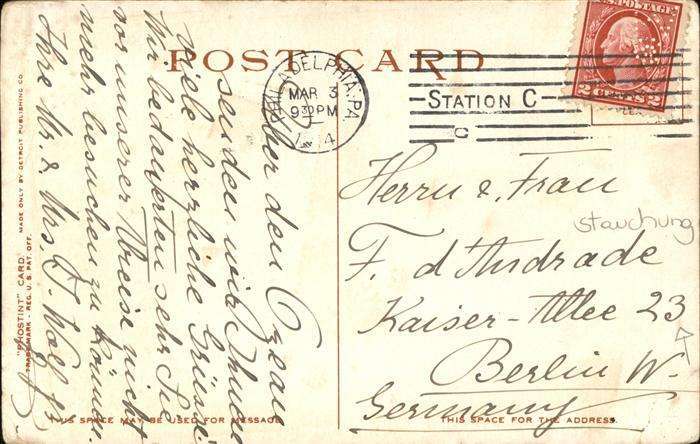 POST CARD
PHILADELPHIA, PA
MAR 3
9 30 PM
STATION C
C
U.S. POSTAGE
2 CENTS 2
Über den Ozean
senden wir Ihnen
viele herzliche Grüsse.
Wir bedauerten sehr Sie
vor unserer Abreise nicht
mehr besuchen zu können.
Ihre Mr. & Mrs.
Herrn & Frau
stauchung
F. d'Andrade
Kaiser-Allee 23
Berlin W.
Germany
"PHOSTINT" CARD
TRADEMARK - REG. U.S. PAT. OFF.
MADE ONLY BY DETROIT PUBLISHING CO.
THIS SPACE MAY BE USED FOR MESSAGE
THIS SPACE FOR THE ADDRESS.